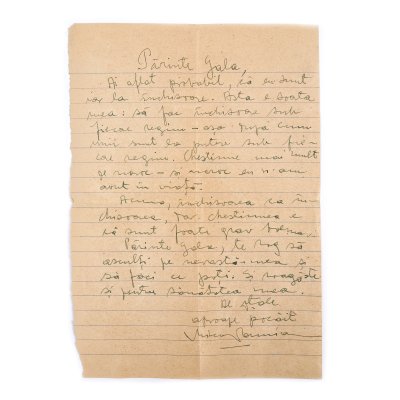 Părinte Gala,
Ai aflat probabil, că eu sunt
iar la închisoare. Asta e soarta
mea: să fac închisoare sub
fiecare regim – așa după cum
unii sunt la putere sub fie-
care regim. Chestiune mai mult
de noroc – și noroc eu n'am
avut în viață.
Acuma, închisoarea ca în-
chisoarea, dar chestiunea e
că sunt foarte grav bolnav.
Părinte Gala, te rog să
asculți pe nevastă-mea și
să faci ce poți. Și
și pentru sănătatea mea.
Al
aproape